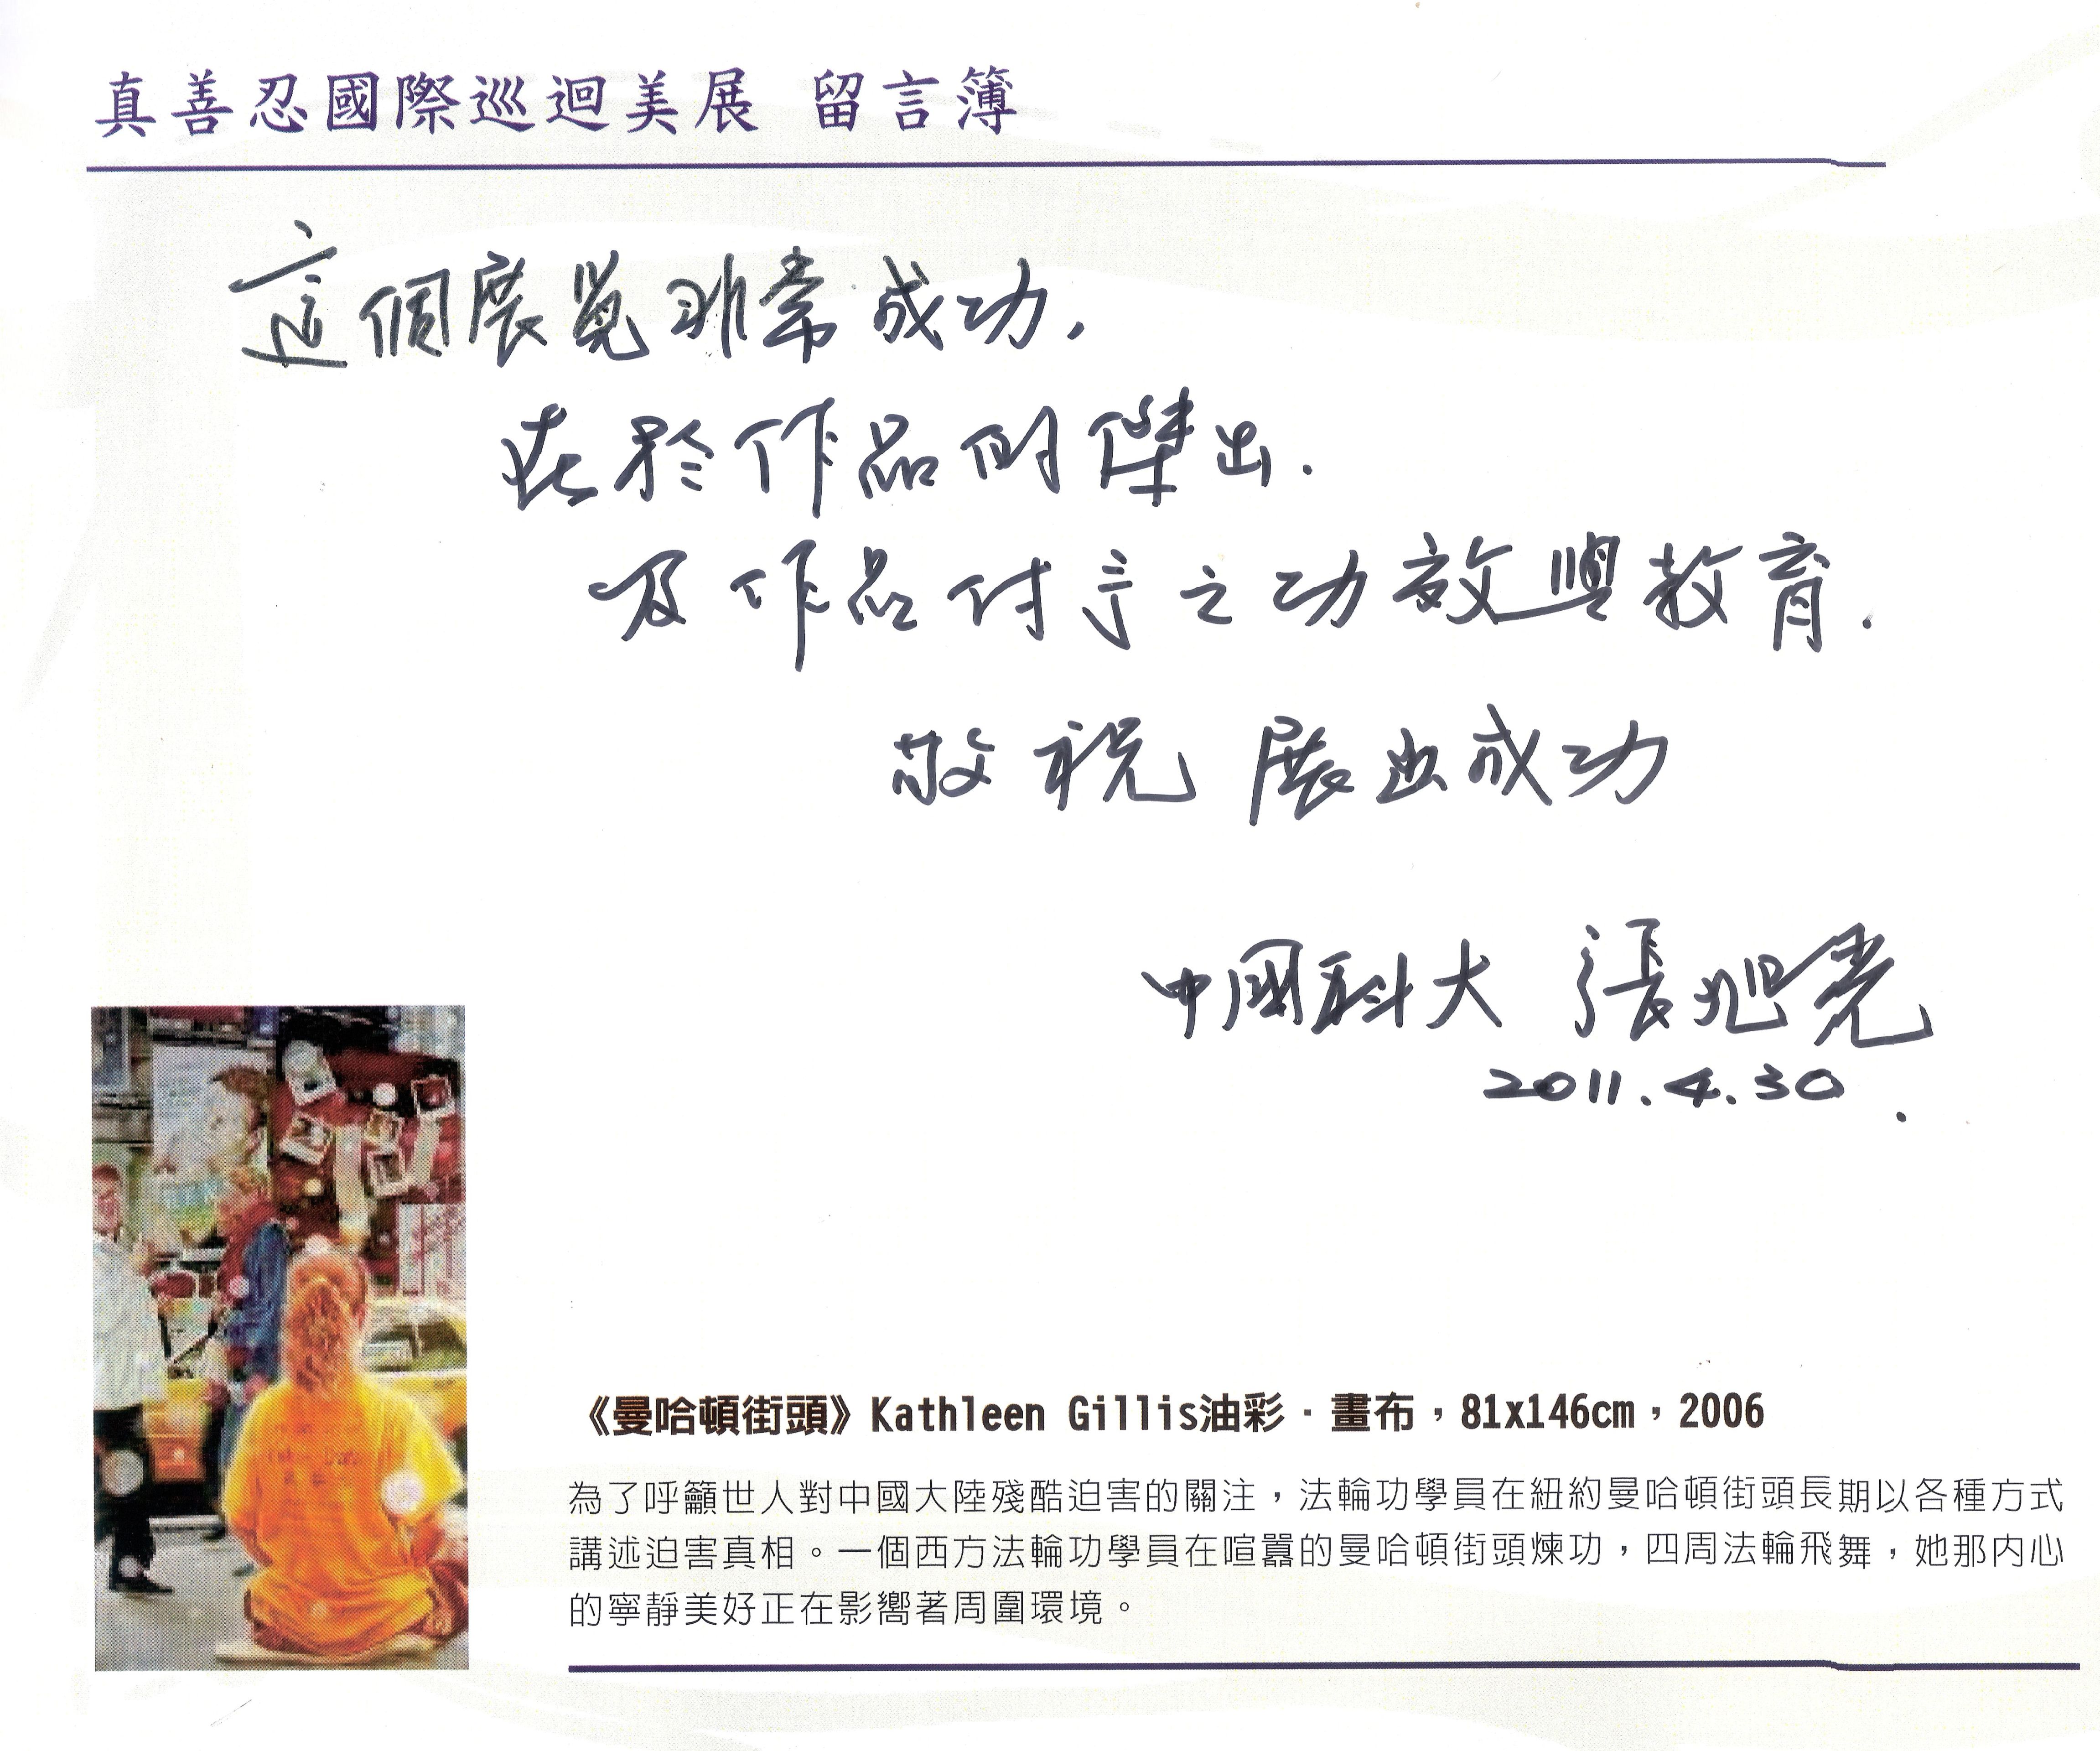 真善忍國際巡迴美展 留言簿
這個展覽非常成功,
在於作品的傑出.
及作品付予之功效與教育.
敬祝 展出成功
中國科大 張旭光
2011.4.30.
《曼哈頓街頭》Kathleen Gillis油彩·畫布，81x146cm，2006
為了呼籲世人對中國大陸殘酷迫害的關注，法輪功學員在紐約曼哈頓街頭長期以各種方式
講述迫害真相。一個西方法輪功學員在喧囂的曼哈頓街頭煉功，四周法輪飛舞，她那內心
的寧靜美好正在影嚮著周圍環境。